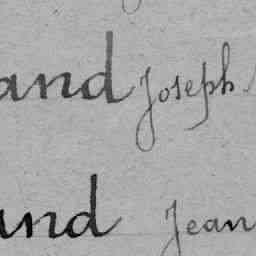 and Joseph
and Jean